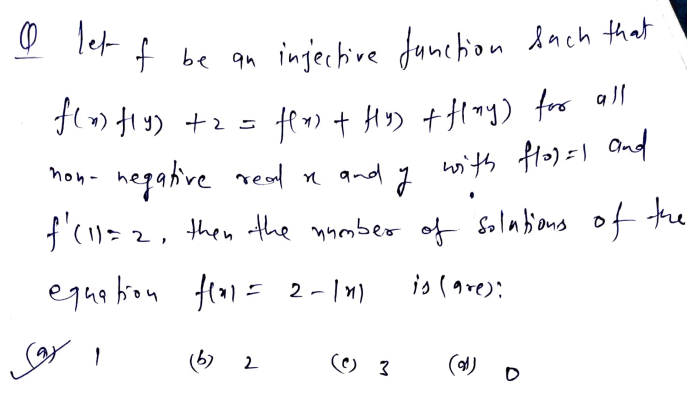 Q let f be an injective function such that
f(x) f(y) + 2 = f(x) + f(y) + f(xy) for all
non-negative real x and y with f(0)=1 and
f'(1)=2, then the number of solutions of the
equation f(x) = 2-|x| is (are):
(a) 1 (b) 2 (c) 3 (d) 0